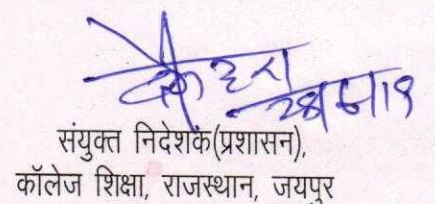 संयुक्त निदेशक(प्रशासन),
कॉलेज शिक्षा, राजस्थान, जयपुर